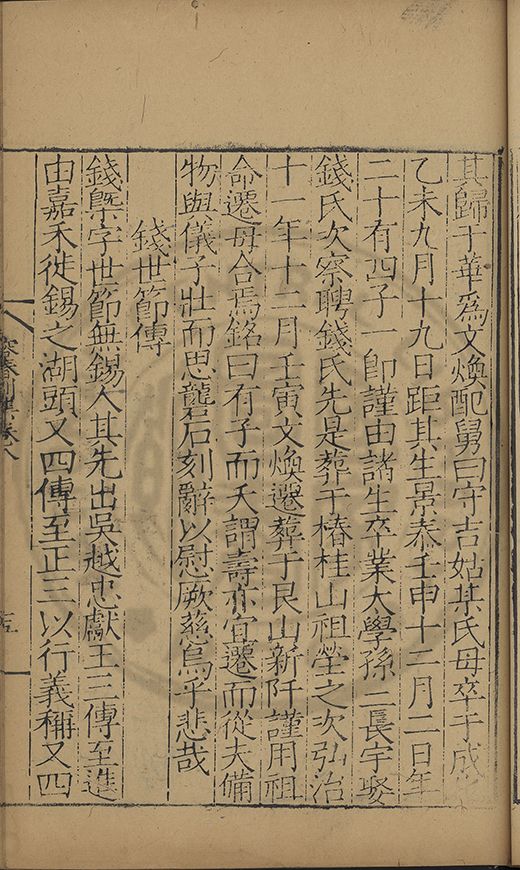 其歸于華為文煥配舅曰守吉姑某氏母卒于成
乙未九月十九日距其生景泰壬申十二月二日年
二十有四子一即謹由諸生卒業大學孫二長宇娶
錢氏次察聘錢氏先是葬于椿桂山祖塋之次弘治
十一年十二月壬寅文煥遷葬于艮山新阡謹用祖
命遷母合焉銘曰有子而夭謂壽亦宜遷而從夫備
物與儀子壯而思礱石刻辭以慰厥慈烏乎悲哉
錢世節傳
錢㮣字世節無錫人其先出吳越忠獻王三傳至進
由嘉禾徙錫之湖頭又四傳至正三以行義稱又四
容春 集卷八
五